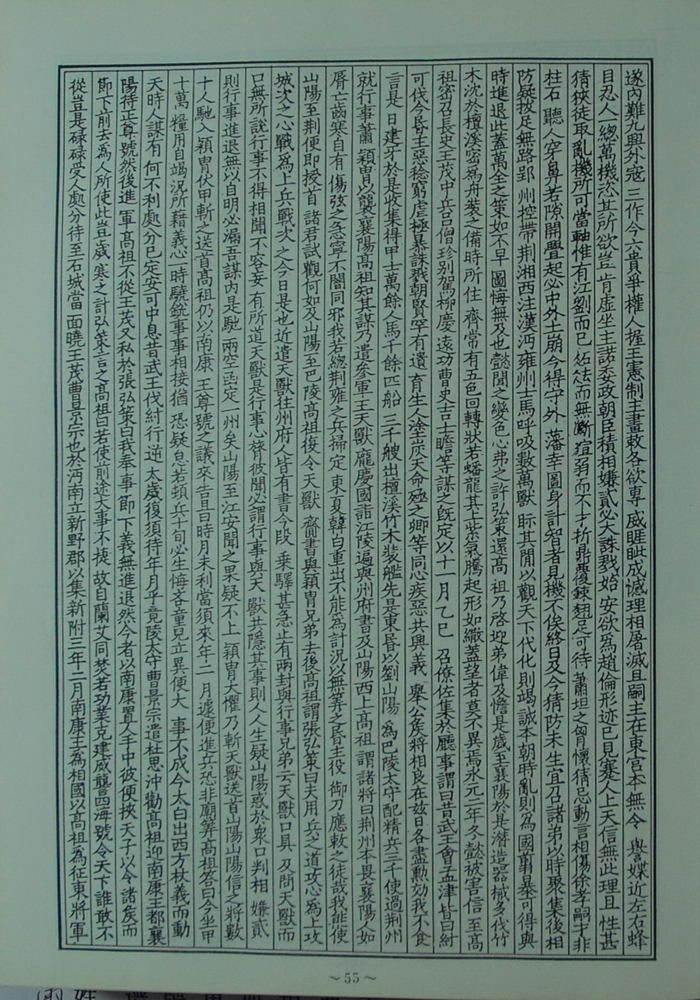 遂內難九興外寇三作今六貴爭權人握王憲制主畫敕各欲專威睚眦成憾理相屠滅且嗣主在東宮本無令譽媟近左右蜂
目忍人一總萬機恣其所欲豈肯虛坐主諾委政朝臣積相嫌貳必大誅戮始安欲為趙倫形迹已見蹇人上天信無此理且性甚
猜狹徒取亂機所可當軸惟有江劉而已祏怯而無斷暄弱而不才折鼎覆餗翹足可待蕭坦之胷懷猜忌動言相傷徐孝嗣才非
柱石聽人穿鼻若隙開舋起必中外土崩今得守外藩幸圖身計智者見機不俟終日及今猜防未生宜召諸弟以時聚集後相
防疑拔足無路郢州控帶荆湘西注漢沔雍州士馬呼吸數萬獸眎其閒以觀天下代化則竭誠本朝時亂則為國翦暴可得與
時進退此蓋萬全之策如不早圖悔無及也懿聞之變色心弗之許弘策還高祖乃啓迎弟偉及憺是歲至襄陽於是潛造器械多伐竹
木沈於檀溪密為舟裝之備時所住齊常有五色回轉狀若蟠龍其上紫氣騰起形如繖蓋望者莫不異焉永元二年冬懿被害信至高
祖密召長史王茂中兵呂僧珍別駕柳慶遠功曹史吉士瞻等謀之既定以十一月乙巳召僚佐集於廳事謂曰昔武王會孟津皆曰紂
可伐今昏主惡稔窮虐極暴誅戮朝賢罕有遺育生人塗炭天命殛之卿等同心疾惡共興義舉公矦將相良在兹日各盡勲効我不食
言是日建牙於是收集得甲士萬餘人馬千餘匹船三千艘出檀溪竹木裝艦先是東昏以劉山陽為巴陵太守配精兵三千使過荆州
就行事蕭穎胄以襲襄陽高祖知其謀乃遣參軍王天獸龐慶國詣江陵遍與州府書及山陽西上高祖謂諸將曰荆州本畏襄陽人如
脣亡齒寒自有傷弦之急寧不闇同邪我若總荆雍之兵掃定東夏韓白重出不能為計況以無筭之昏主役御刀應敕之徒哉我能使
山陽至荆便即授首諸君試觀何如及山陽至巴陵高祖復令天獸齎書與穎胄兄弟去後高祖謂張弘策曰夫用兵之道攻心為上攻
城次之心戰為上兵戰次之今日是也近遣天獸往州府人皆有書今段乘驛甚急止有兩封與行事兄弟云天獸口具及問天獸而
口無所說行事不得相聞不容妄有所道天獸是行事心膂彼聞必謂行事與天獸共隱其事則人人生疑山陽惑於衆口判相嫌貳
則行事進退無以自明必漏吾謀內是馳兩空函定一州矣山陽至江安聞之果疑不上穎胄大懼乃斬天獸送首山陽山陽信之將數
十人馳入穎胄伏甲斬之送首高祖仍以南康王尊號之議來告且曰時月未利當須來年二月遽便進兵恐非廟筭高祖答曰今坐甲
十萬糧用自竭況所藉義心一時驍銳事事相接猶恐疑怠若頓兵十旬必生悔吝童兒立異便大事不成今太白出西方杖義而動
天時人謀有何不利處分已定安可中息昔武王伐紂行逆太歲復須待年月乎竟陵太守曹景宗遣杜思沖勸高祖迎南康王都襄
陽待正尊號然後進軍高祖不從王茂又私於張弘策曰我奉事節下義無進退然今者以南康置人手中彼便挾天子以令諸矦而
節下前去為人所使此豈歲寒之計弘策言之高祖曰若使前途大事不捷故自蘭艾同焚若功業克建威讋四海號令天下誰敢不
從豈是碌碌受人處分待至石城當面曉王茂曹景宗也於沔南立新野郡以集新附三年二月南康王為相國以高祖為征東將軍
~55~